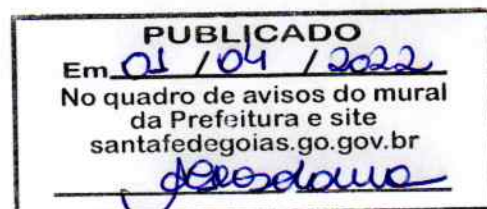 PUBLICADO
Em 01 / 04 / 2022
No quadro de avisos do mural
da Prefeitura e site
santafedegoias.go.gov.br